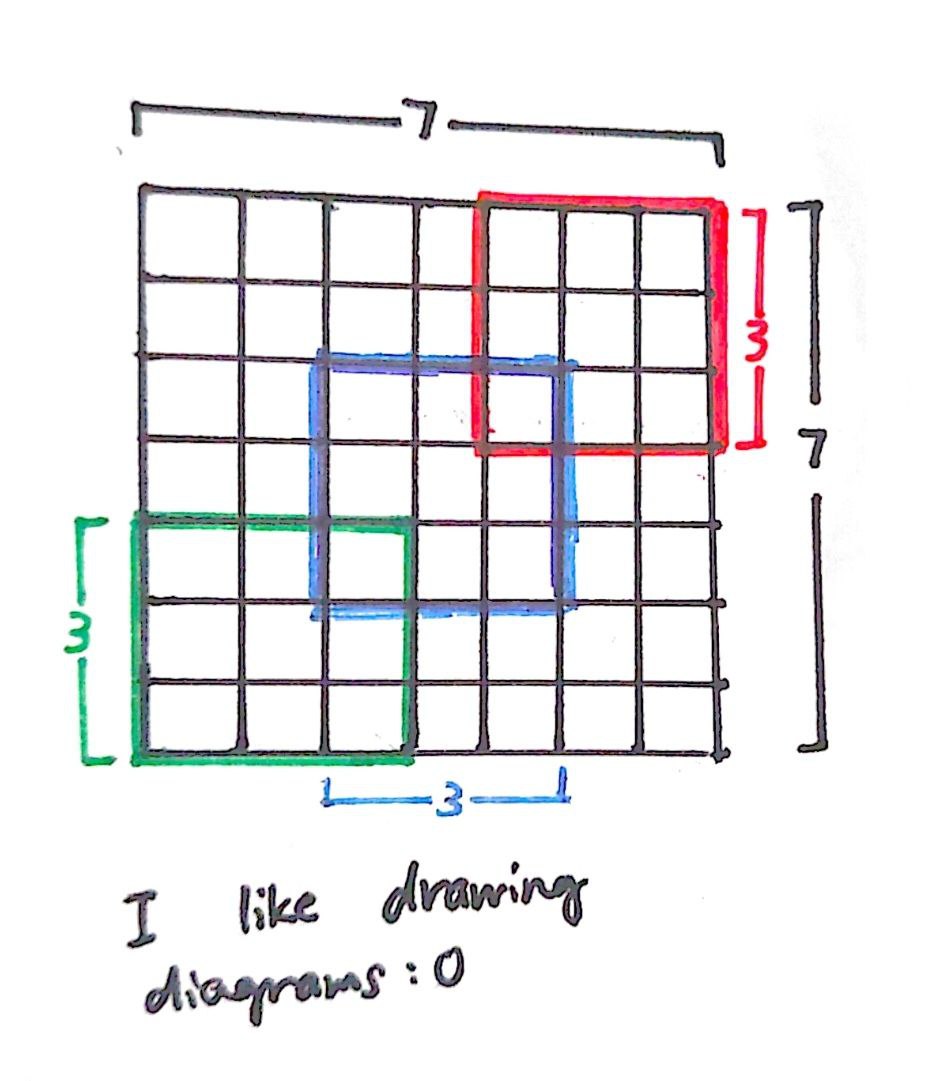 7
3
7
3
3
I like drawing
diagrams : O